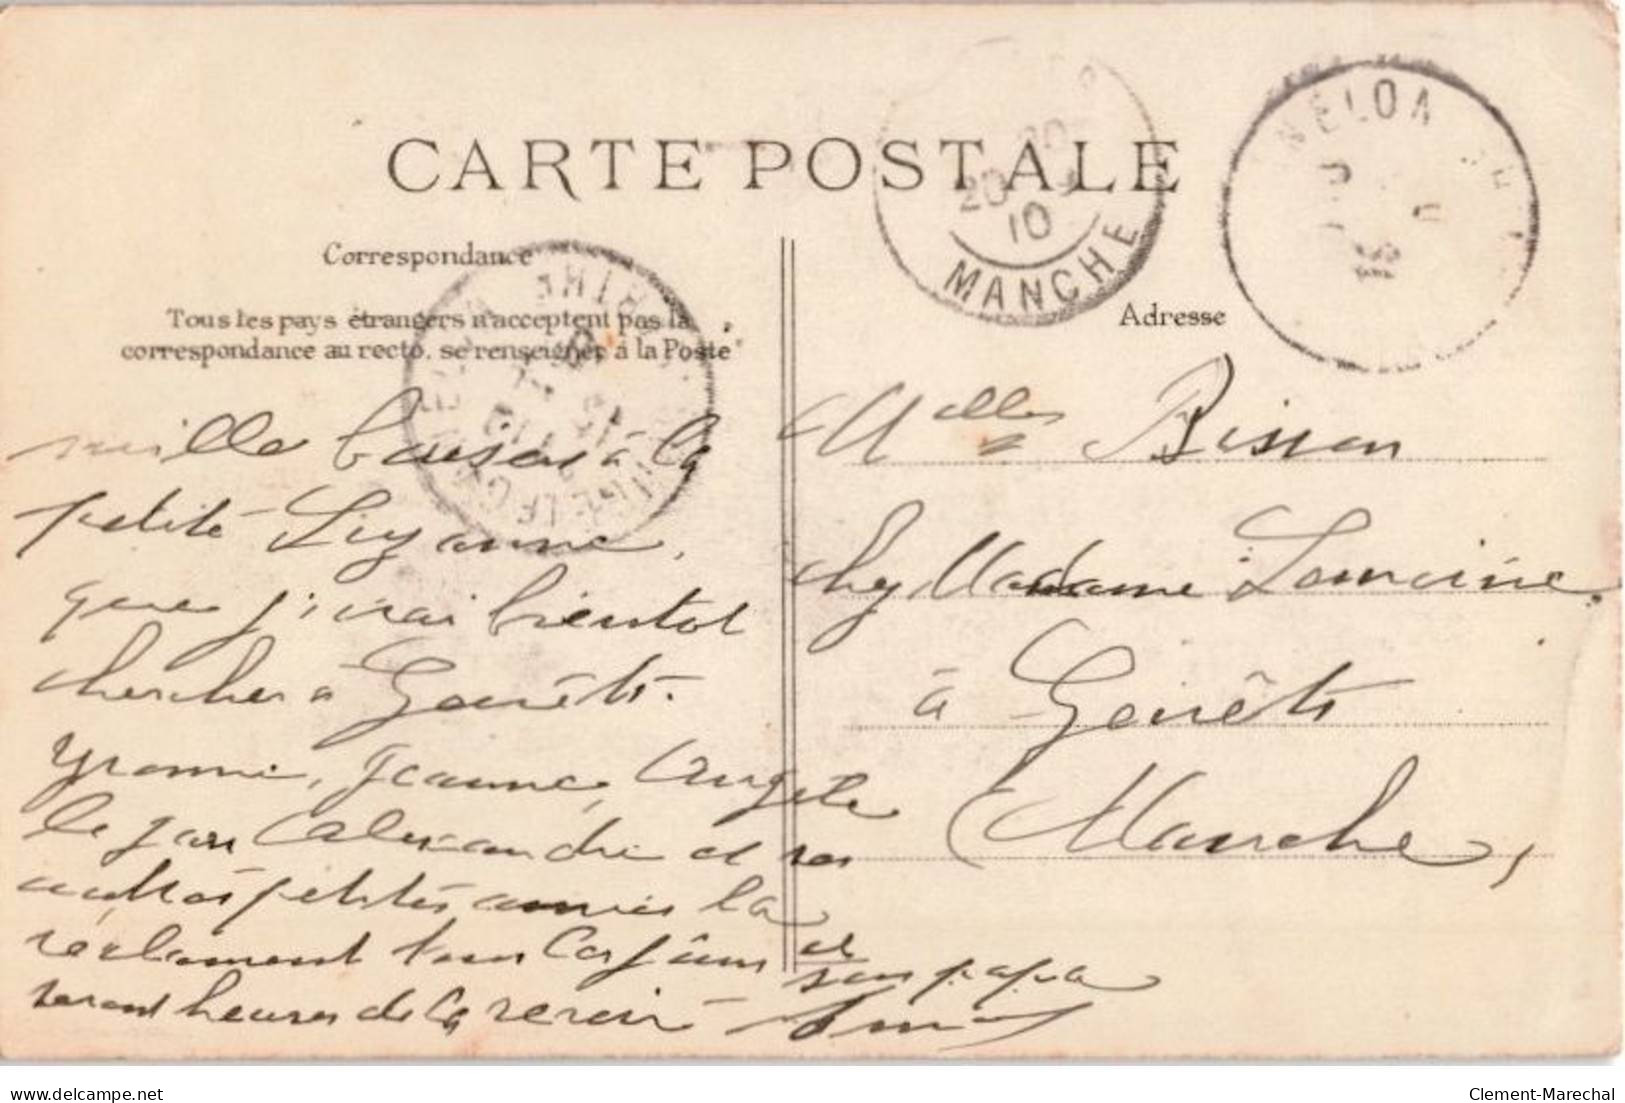 CARTE POSTALE
20
10
MANCHE
Correspondance
Tous les pays étrangers n'acceptent pas la
correspondance au recto. se renseigner à la Poste
Adresse
mille baisers à la
petite Suzanne,
que j'irai bientot
chercher à Genêts.
Yvonne, Jeanne, Angèle
le Alexandre et ses
autres petites amies la
réclament tous les jours et
seront heureux de la revoir son papa
Melles Bisson
chez Madame Lemoine
à Genêts
Manche,
www.delcampe.net
Clement-Marechal